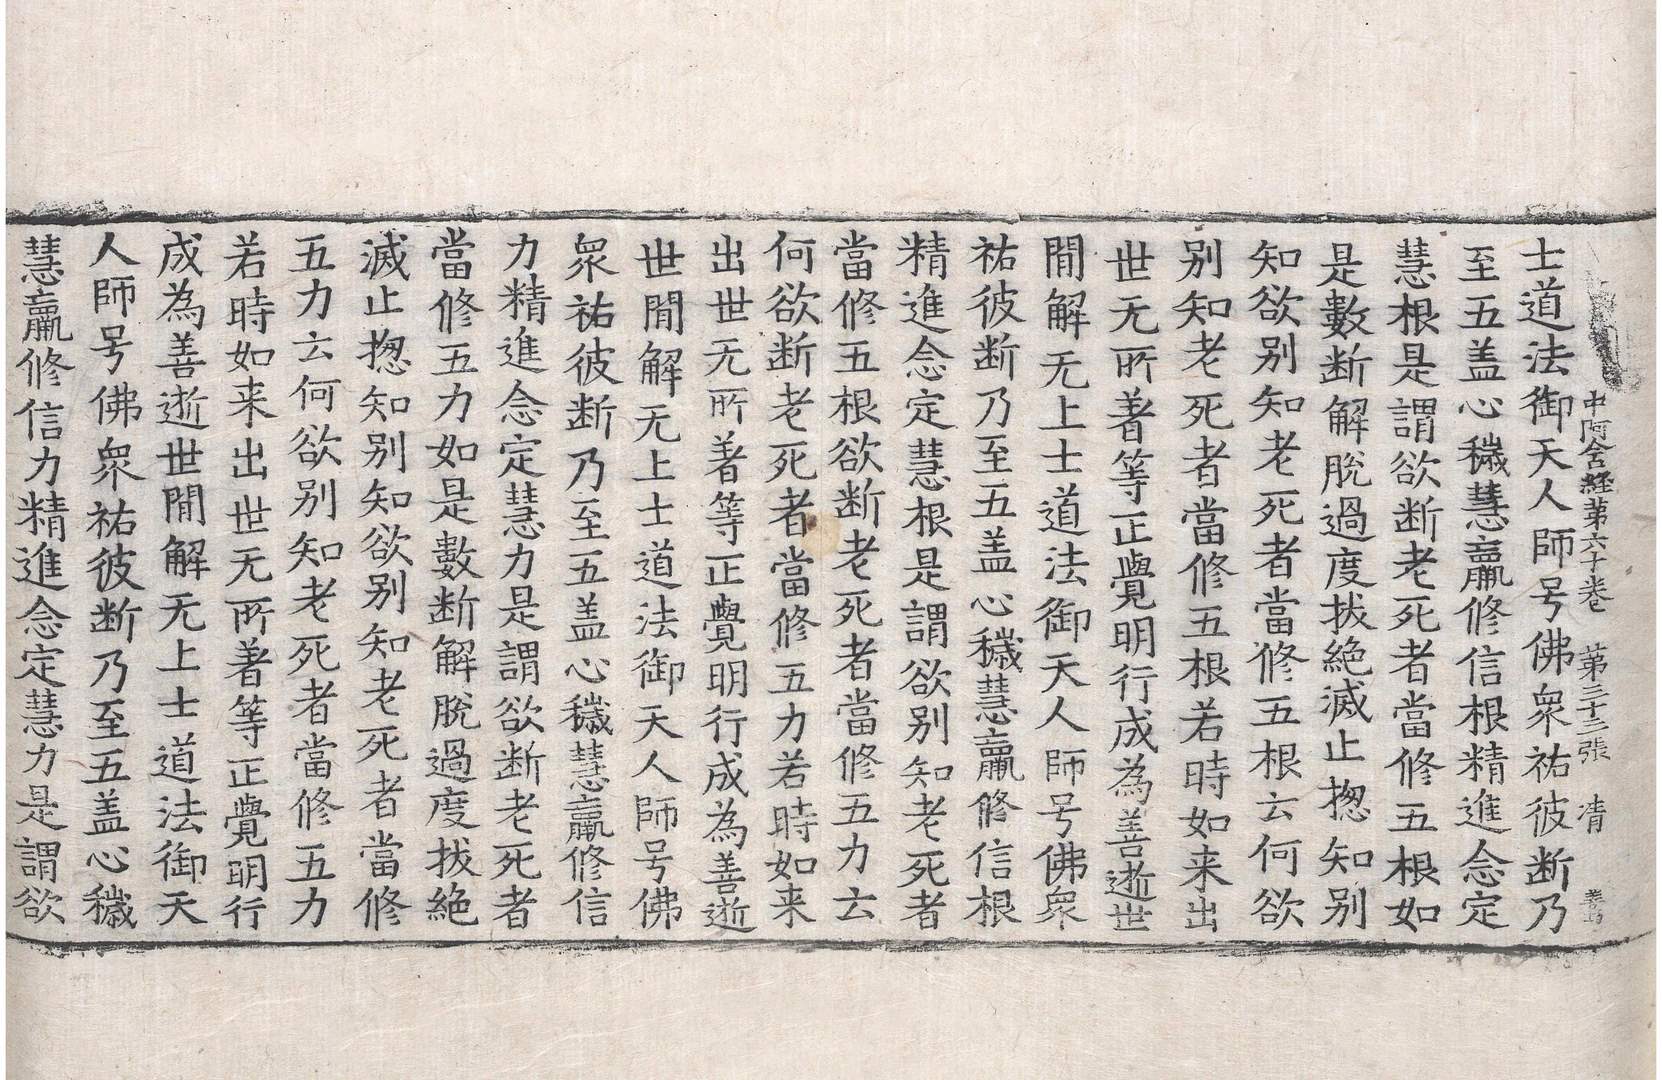 中阿含経第六十卷 第三十三張 清
士道法御天人師号佛衆祐彼断乃
至五盖心穢慧羸修信根精進念定
慧根是謂欲断老死者當修五根如
是數断解脫過度拔絶滅止揔知別
知欲別知老死者當修五根云何欲
別知老死者當修五根若時如来出
世无所著等正覺明行成為善逝世
間解无上士道法御天人師号佛衆
祐彼断乃至五盖心穢慧羸修信根
精進念定慧根是謂欲別知老死者
當修五根欲断老死者當修五力云
何欲断老死者當修五力若時如来
出世无所著等正覺明行成為善逝
世間解无上士道法御天人師号佛
衆祐彼断乃至五盖心穢慧羸修信
力精進念定慧力是謂欲断老死者
當修五力如是數断解脫過度拔絶
滅止揔知別知欲別知老死者當修
五力云何欲別知老死者當修五力
若時如来出世无所著等正覺明行
成為善逝世間解无上士道法御天
人師号佛衆祐彼断乃至五盖心穢
慧羸修信力精進念定慧力是謂欲